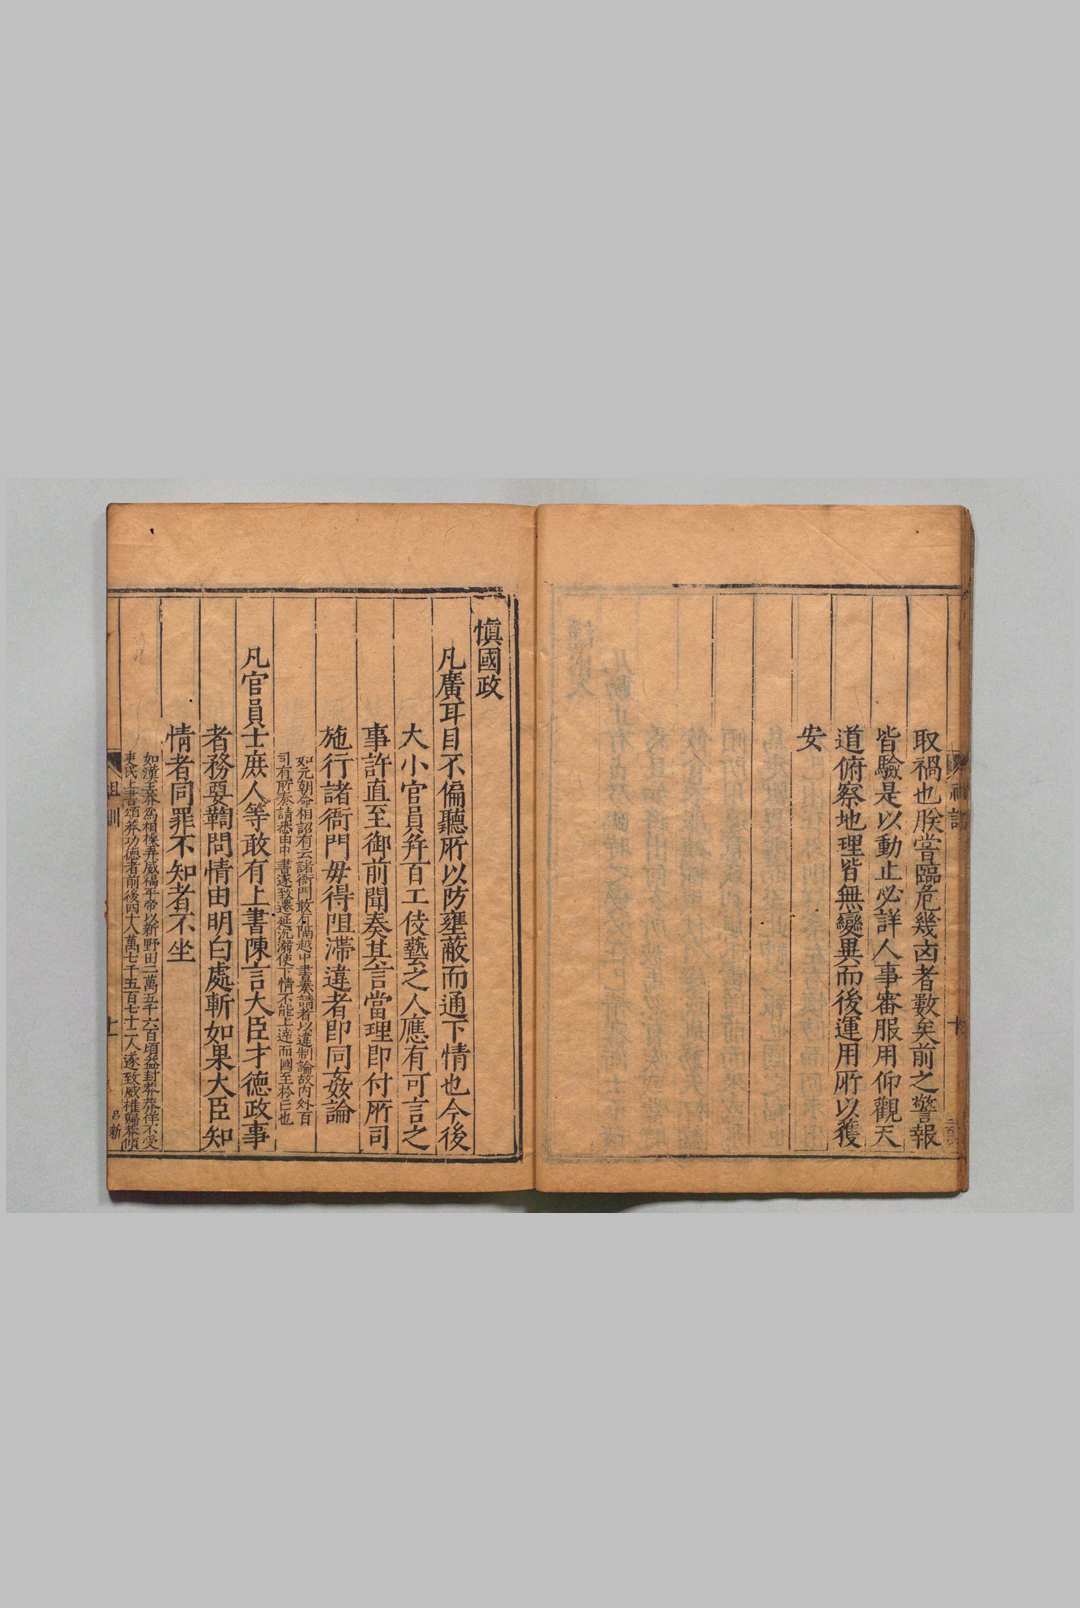 取禍也朕嘗臨危幾凶者數矣前之警報
皆驗是以動止必詳人事審服用仰觀天
道俯察地理皆無變異而後運用所以獲
安
慎國政
凡廣耳目不偏聽所以防壅蔽而通下情也今後
大小官員并百工伎藝之人應有可言之
事許直至御前聞奏其言當理即付所司
施行諸衙門毋得阻滯違者即同姦論
如元朝命相詔有云諸衙門敢有隔越中書奏請者以違制論故內外百
司有所奏請悉由中書遂致遷延沉溺使下情不能上達而國至於亡也
凡官員士庶人等敢有上書陳言大臣才德政事
者務要鞫問情由明白處斬如果大臣知
情者同罪不知者不坐
如漢王莽為相操弄威福平帝以新野田二萬五千六百頃益封莽莽佯不受
吏民上書頌莽功德者前後四十八萬七千五百七十二人遂致威權歸莽傾
祖訓
十一